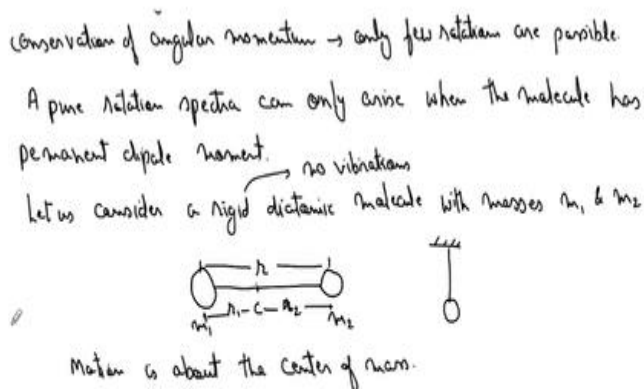 conservation of angular momentum → only few rotations are possible.
A pure rotation spectra can only arise when the molecule has
permanent dipole moment.
→ no vibrations
Let us consider a rigid diatomic molecule with masses m₁ & m₂
r
r₁ - C - r₂
m₁ m₂
Motion is about the center of mass.